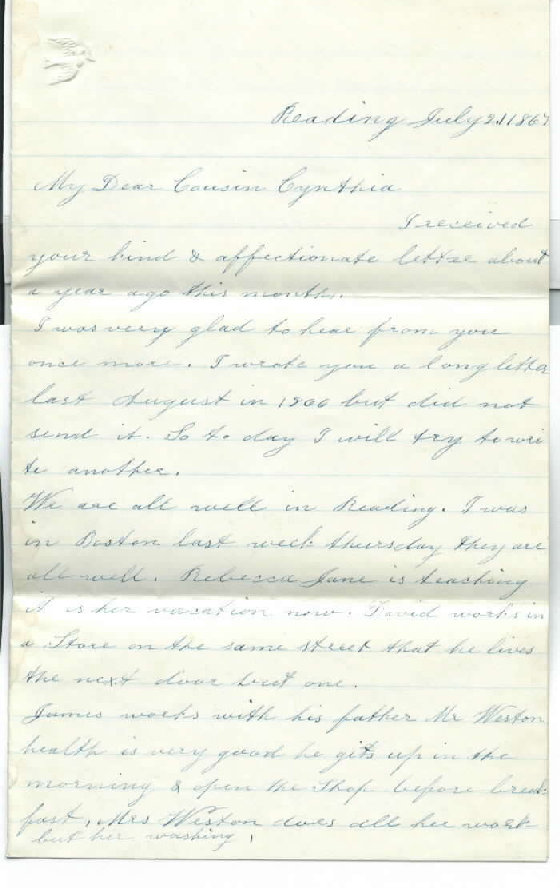 Reading July 21 1867
My Dear Cousin Cynthia
I received
your kind & affectionate letter about
a year ago this month.
I was very glad to hear from you
once more. I wrote you a long letter
last August in 1866 but did not
send it. So to day I will try to wri
te another.
We are all well in Reading. I was
in Boston last week thursday they are
all well. Rebecca Jane is teaching
it is her vacation now. David works in
a Store on the same street that he lives
the next door but one.
James works with his father Mr Weston
health is very good he gits up in the
morning & open the Shop before break
fast, Mrs Weston does all her work
but her washing.